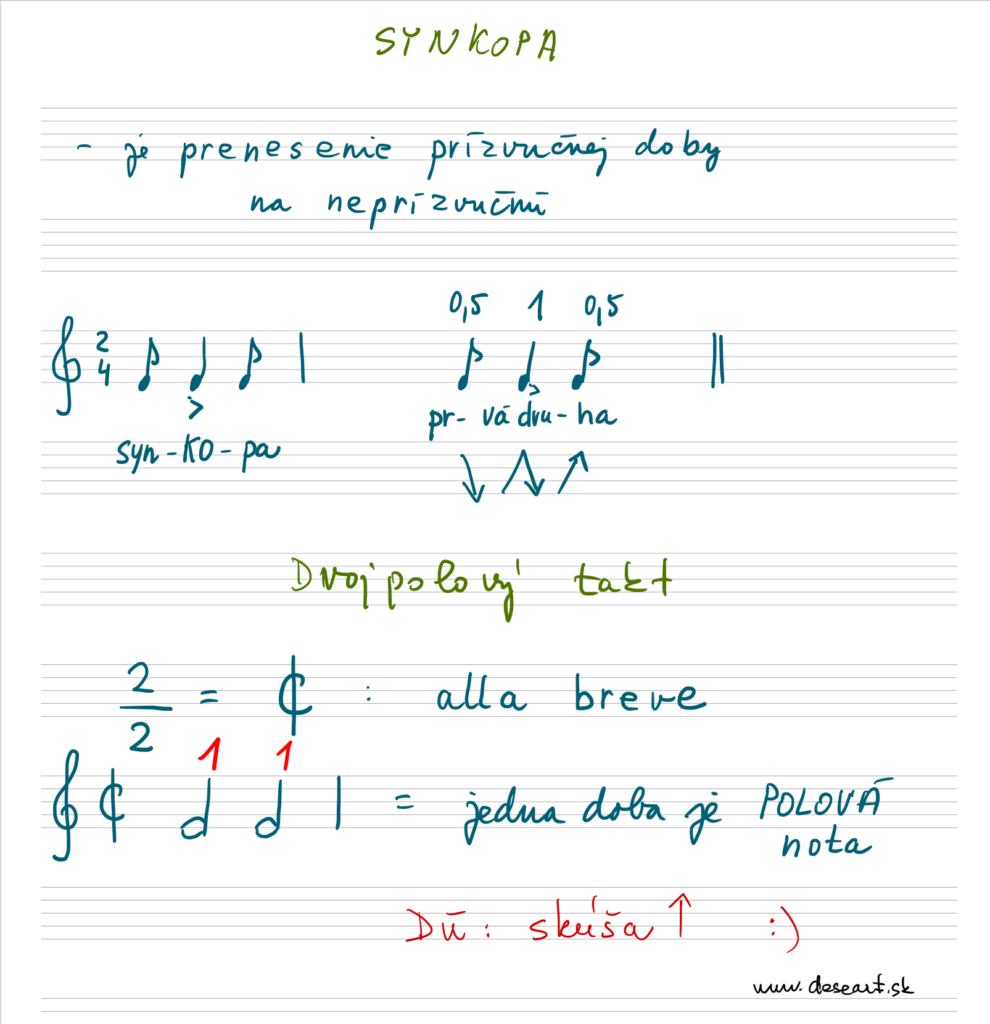 SYNKOPA
- je prenesenie prízvučnej doby
na neprízvučnú
0,5 1 0,5
2
4
>
>
syn-KO-pa
pr- vá dru-ha
Dvojpolový takt
2
2 = ¢ : alla breve
1 1
¢ = jedna doba je POLOVÁ
nota
DÚ: skúša ↑ :)
www.deseart.sk